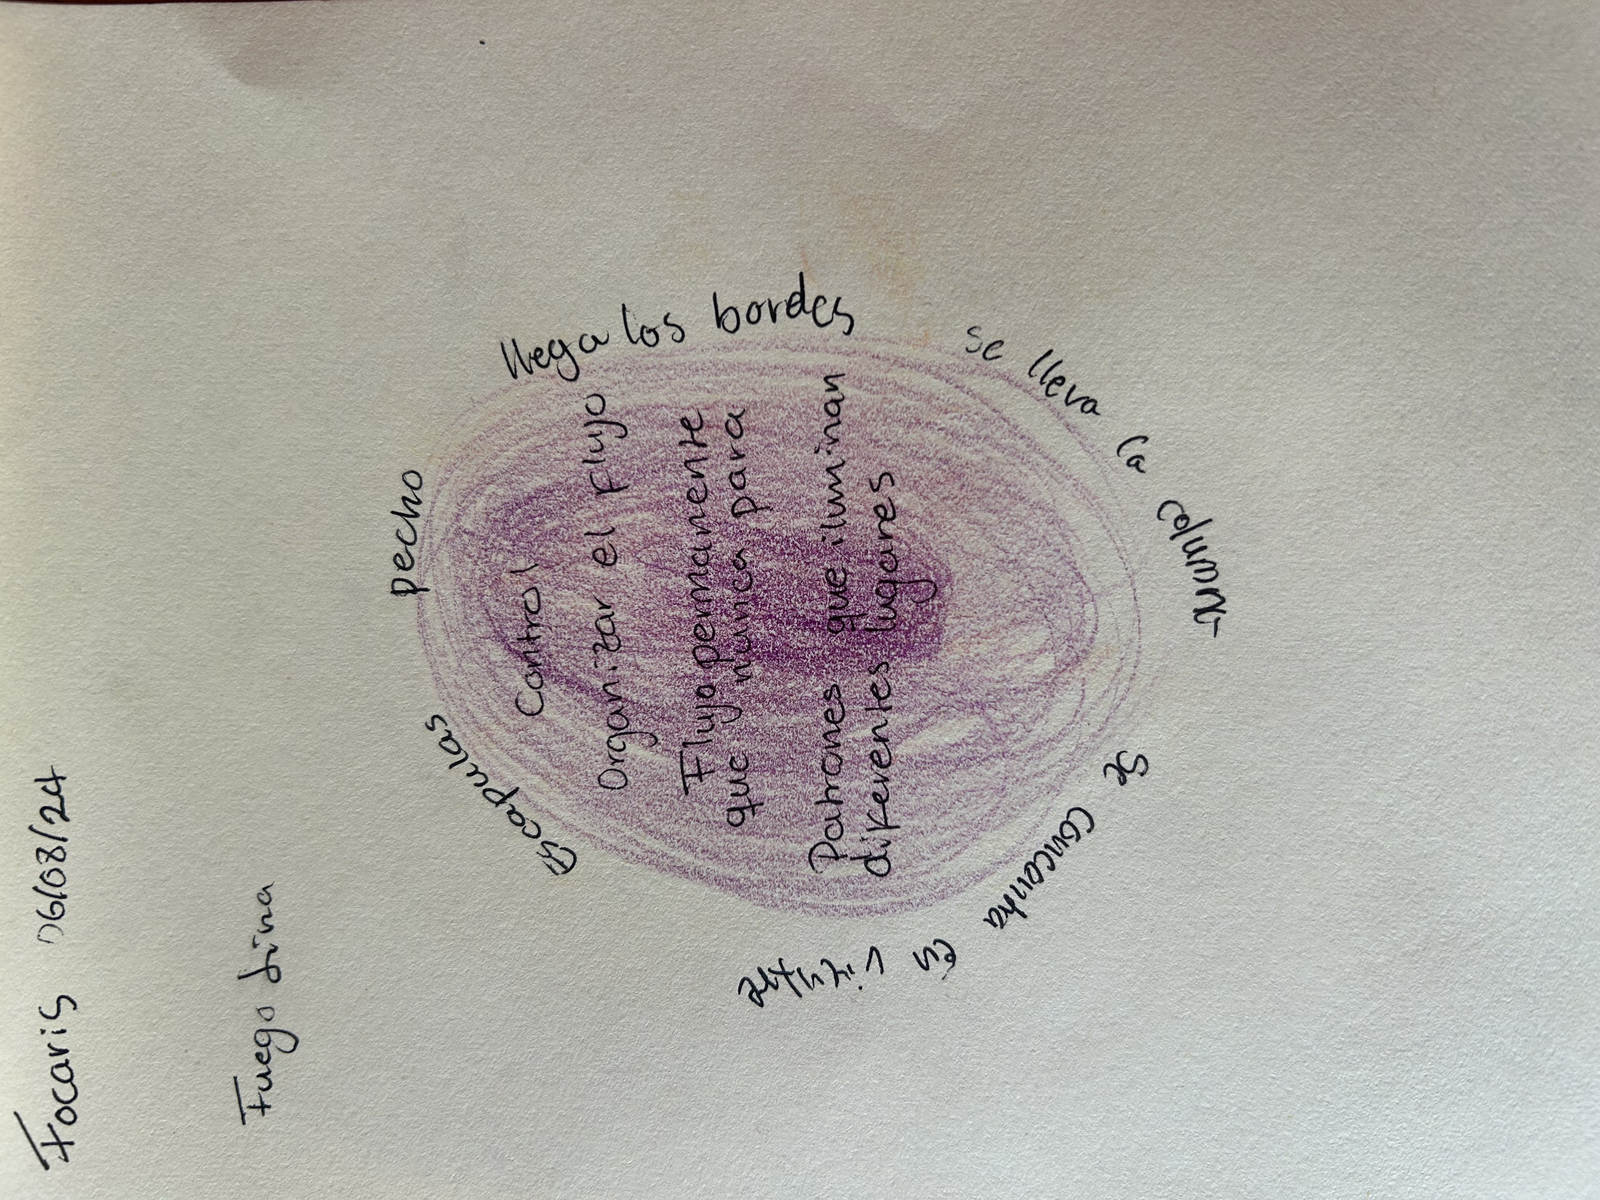 Focaris 06/08/24
Fuego Lina
pecho
llega los bordes
se lleva la columna
Se concentra en vientre
Escapulas
Control
Organizar el Flujo
Flujo permanente
que nunca para
Patrones que iluminan
diferentes lugares